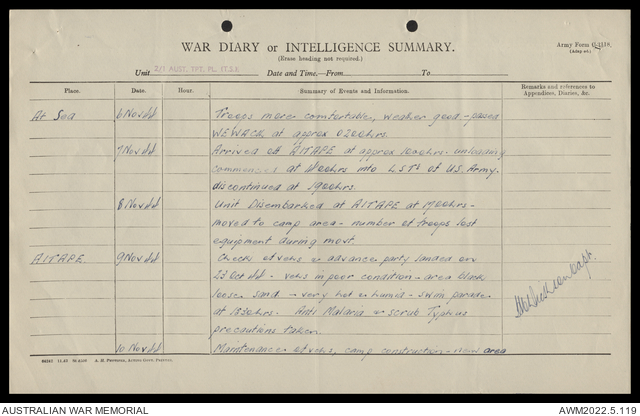 WAR DIARY or INTELLIGENCE SUMMARY.
(Erase heading not required.)
Army Form C-2118.
(Adap at.)
Unit 2/1 AUST. TPT. PL. Date and Time:—From To
Place. Date. Hour. Summary of Events and Information. Remarks and references to Appendices, Diaries, &c.
At Sea 6 Nov 44 Troops more comfortable, weather good - passed
WEWACK at approx 0200hrs.
7 Nov 44 Arrived off AITAPE at approx hrs. unloading
commences at hrs into LSTs of U.S. Army.
discontinued at 1900hrs.
8 Nov 44 Unit Disembarked at AITAPE at hrs -
moved to camp area - number of troops lost
equipment during movt.
AITAPE 9 Nov 44 Checks of vehs & advance party landed on
23 Oct 44 - vehs in poor condition - area black
loose sand - very hot & humid - swim parade
at hrs. Anti Malaria & scrub Typhus
precautions taken.
10 Nov 44 Maintenance of vehs, camp construction - area
Capt.
A. H. Pettifer, Acting Govt. Printer.
AUSTRALIAN WAR MEMORIAL
AWM2022.5.119